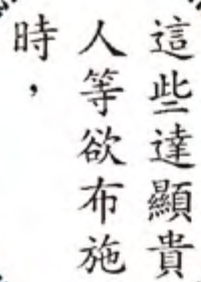 這些達顯貴
人等欲布施
時，